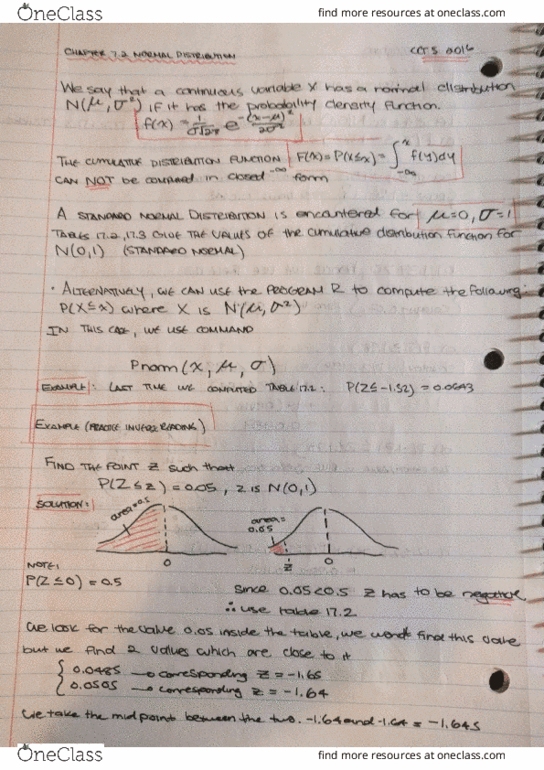 OneClass
find more resources at oneclass.com
CHAPTER 7.2 NORMAL DISTRIBUTION
We say that a continuous variable X has a normal distribution
N(μ, σ²) if it has the probability density function.
f(x) = 1/(σ√2π) e^(-(x-μ)²/2σ²)
THE CUMULATIVE DISTRIBUTION FUNCTION F(x) = P(X≤x) = ∫_{-∞}^{x} f(y)dy
CAN NOT be computed in closed form
A STANDARD NORMAL DISTRIBUTION is encountered for μ=0, σ=1
TABLES 17.2, 17.3 GIVE THE VALUES OF the cumulative distribution function for
N(0,1) (STANDARD NORMAL)
· ALTERNATIVELY, WE CAN USE the PROGRAM R to compute the following:
P(X≤x) where X is N(μ, σ²)
IN THIS CASE, WE USE COMMAND
Pnorm(x, μ, σ)
EXAMPLE: LAST TIME WE COMPUTED TABLE 17.2: P(Z≤-1.52) = 0.0643
EXAMPLE (PRACTICE INVERSE READING)
FIND THE POINT Z such that
P(Z≤z) = 0.05, Z is N(0,1)
SOLUTION:
area=0.5
area=
0.05
0
z
0
NOTE:
P(Z≤0) = 0.5
Since 0.05<0.5 z has to be negative
∴ use table 17.2
We look for the value 0.05 inside the table, we wont find this value
but we find 2 values which are close to it
{ 0.0485 → corresponding z = -1.65
0.0505 → corresponding z = -1.64
We take the midpoint between the two. -1.64 and -1.64 = -1.645
OneClass
find more resources at oneclass.com